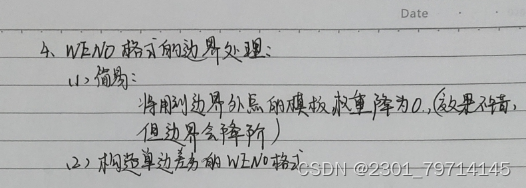 Date
4、WENO格式的边界处理:
(1)、简易:
将用到边界外点的模板权重降为0,(效果不错,
但边界会降阶)
(2)、构造单边差分的WENO格式
CSDN @2301_79714145